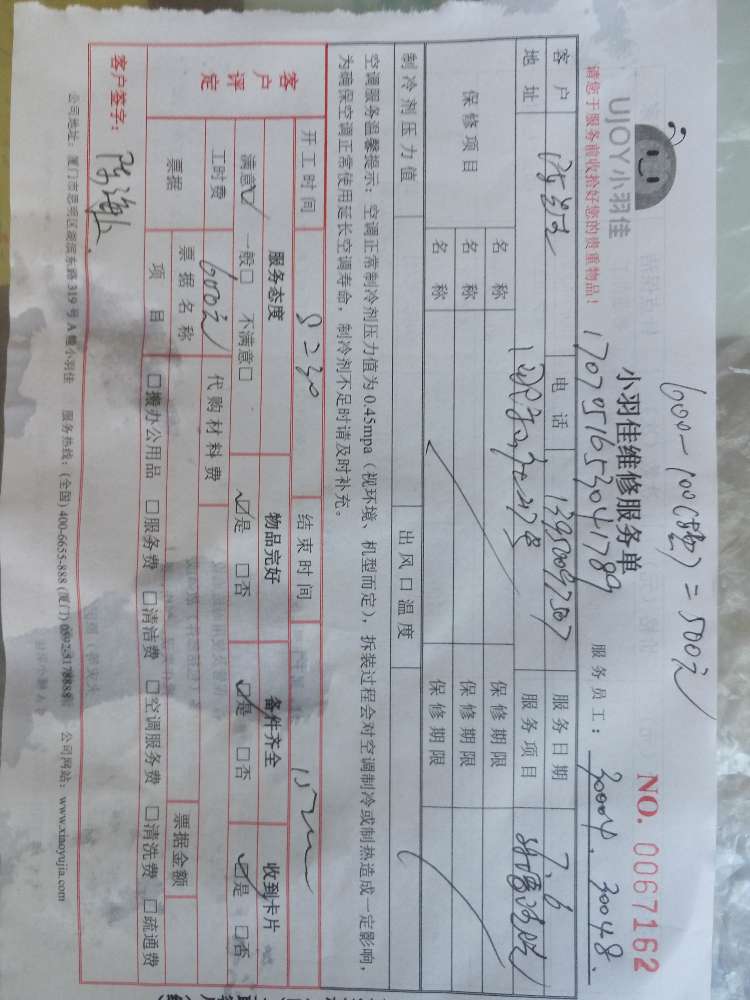 600-100(券)=500元
UJOY小羽佳
小羽佳维修服务单
NO. 0067162
请您于服务前收拾好您的贵重物品!
1707051653041789
服务员工: 30004. 30048.
客户
电话 13950097507
服务日期 7.6
地址
服务项目
保修项目
名称 保修期限
名称 保修期限
名称 保修期限
制冷剂压力值 出风口温度
空调服务温馨提示: 空调正常制冷剂压力值为0.45mpa(视环境、机型而定), 拆装过程会对空调制冷或制热造成一定影响,
为确保空调正常使用延长空调寿命, 制冷剂不足时请及时补充。
开工时间 8:30 结束时间
客户评定
服务态度 物品完好 备件齐全 收到卡片
满意☑ 一般□ 不满意□ ☑是 □否 ☑是 □否 ☑是 □否
工时费 600元 代购材料费
票据 票据名称 票据金额
项目 □搬办公用品 □服务费 □清洁费 □空调服务费 □清洗费 □疏通费
客户签字:
公司地址: 厦门市思明区湖滨东路319号A幢小羽佳 服务热线: (全国) 400-6655-888 (厦门) 0592-8178888 公司网站: www.xiaoyujia.com